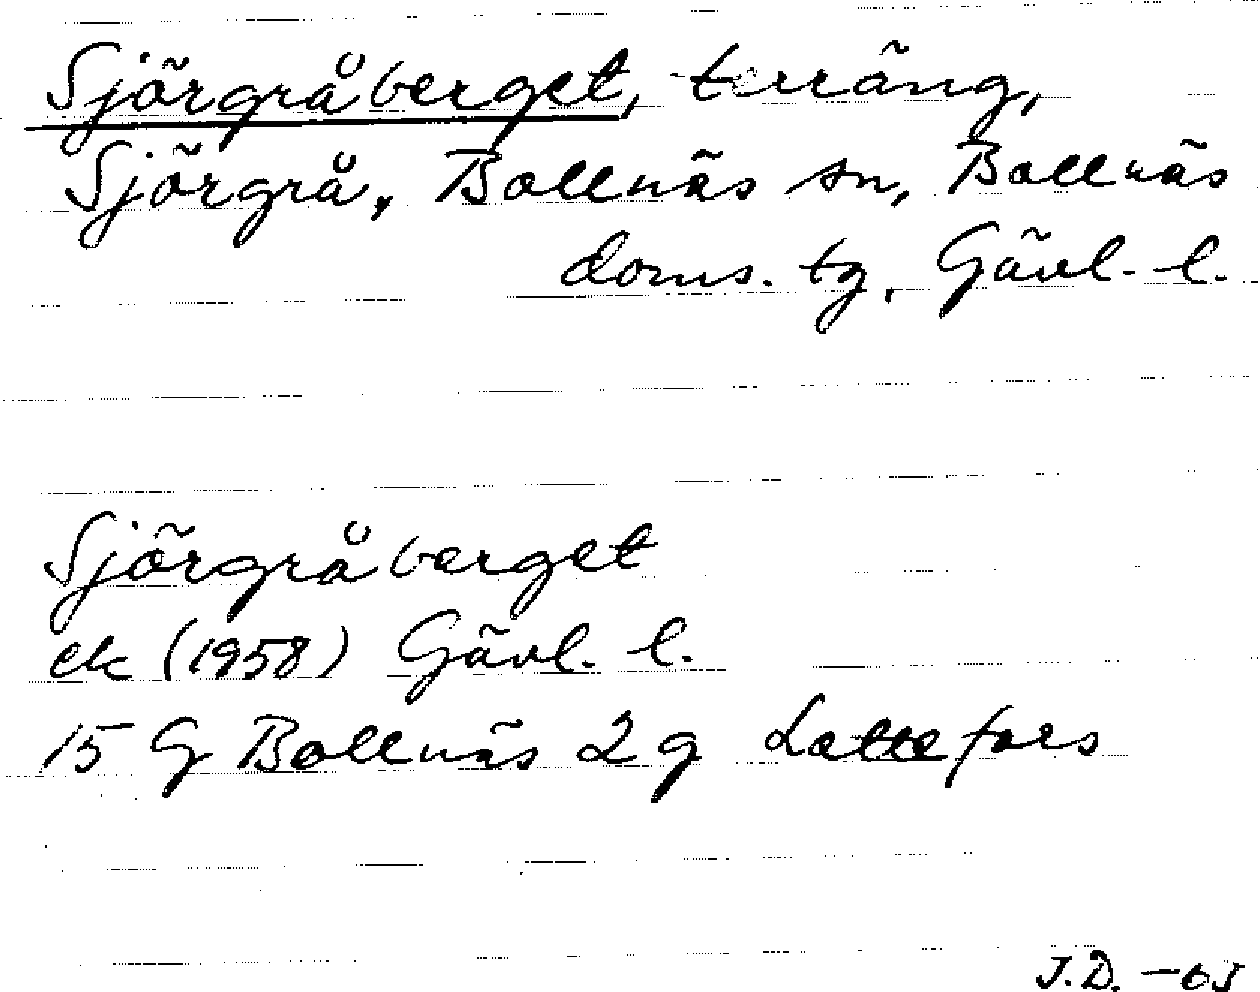 Sjörgråberget, terräng,
Sjörgrå, Bollnäs sn, Bollnäs
doms. tg, Gävl. l.
Sjörgråberget
ek (1958) Gävl. l.
15 G Bollnäs 2 g Lottefors
J.D. -65